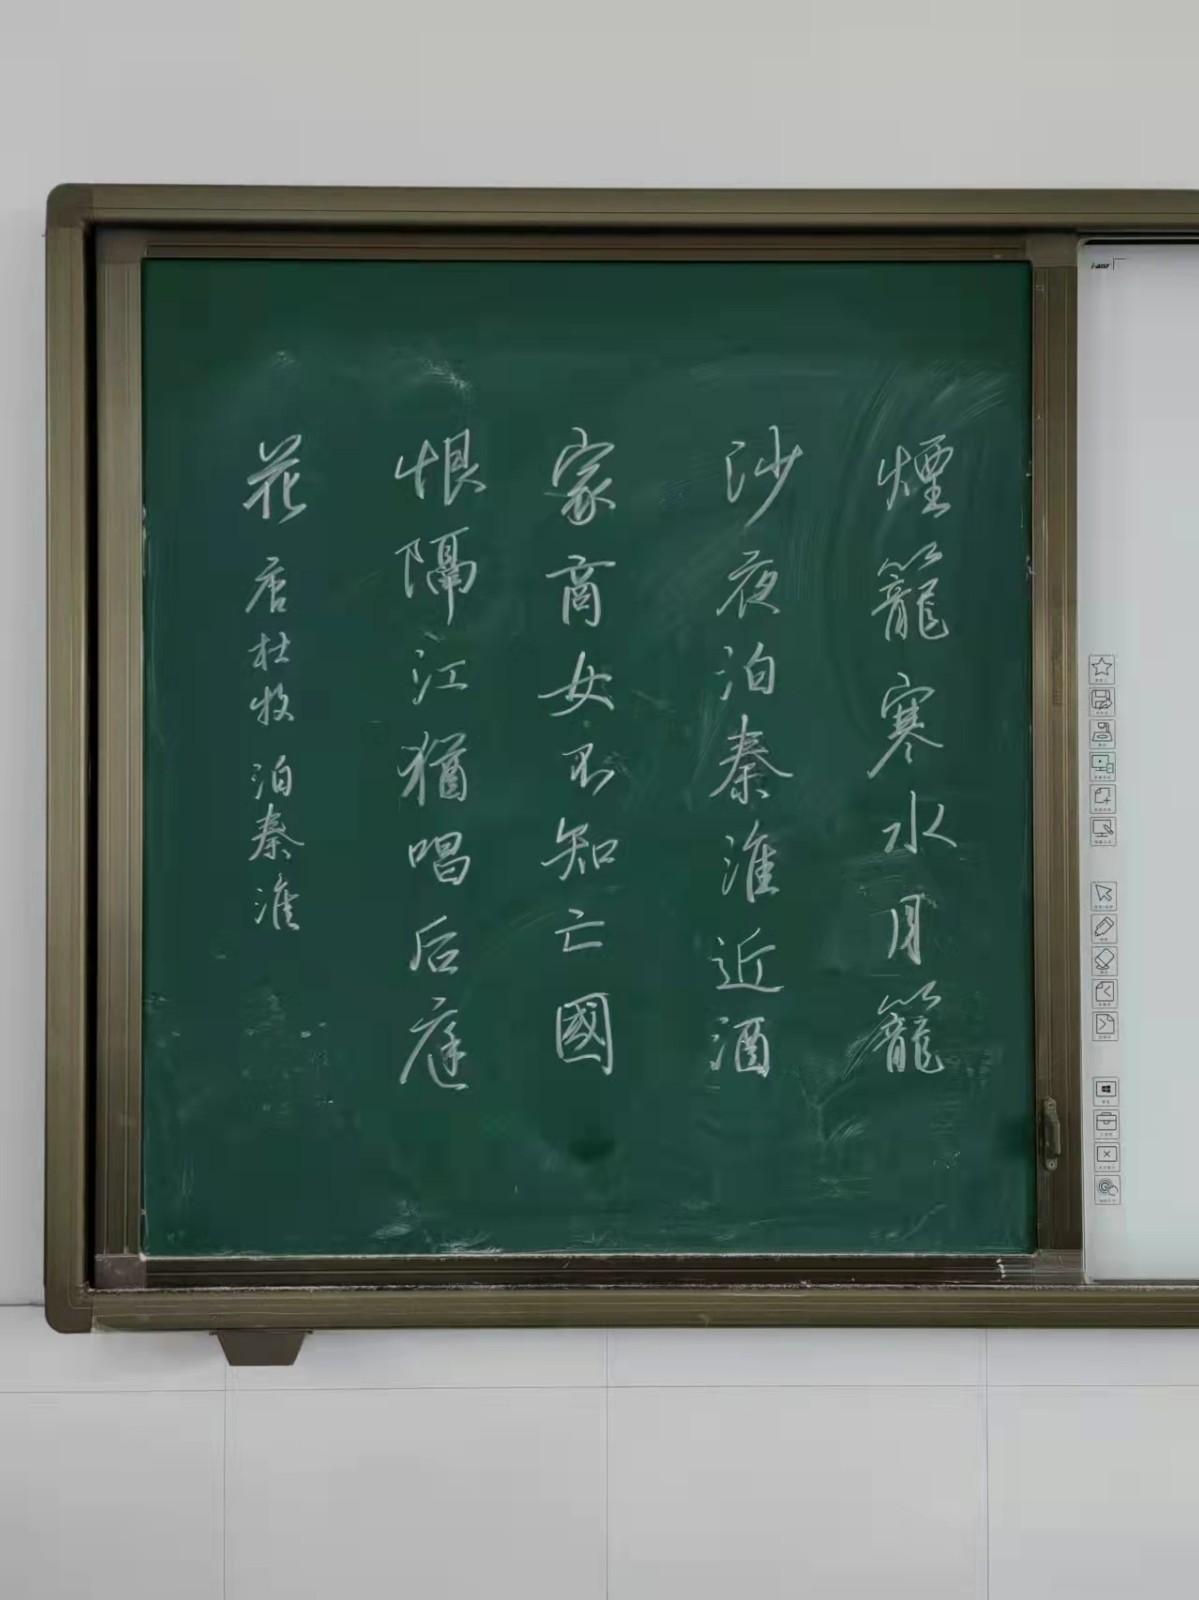 煙籠寒水月籠
沙夜泊秦淮近酒
家商女不知亡國
恨隔江猶唱后庭
花 唐杜牧 泊秦淮